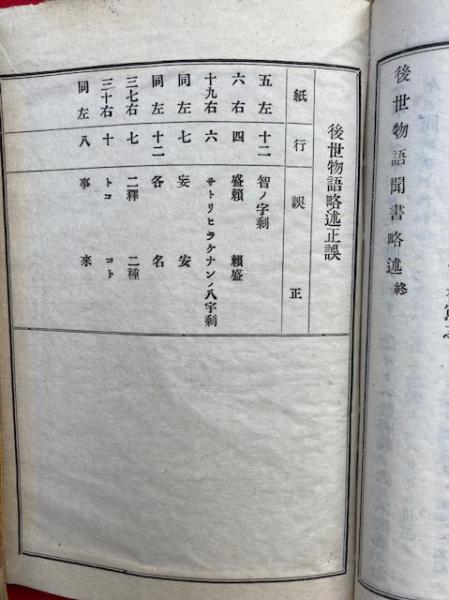 後世物語聞書略述終
後世物語略述正誤
紙 行 誤 正
五左 十二 智ノ字剩
六右 四 盛頼 頼盛
十九右 六 サトリヒラケナンノ八字剩
同左 七 妄 安
同左 十二 各 名
三七右 七 二釋 二種
三十右 十 トコ コト
同左 八 事 來